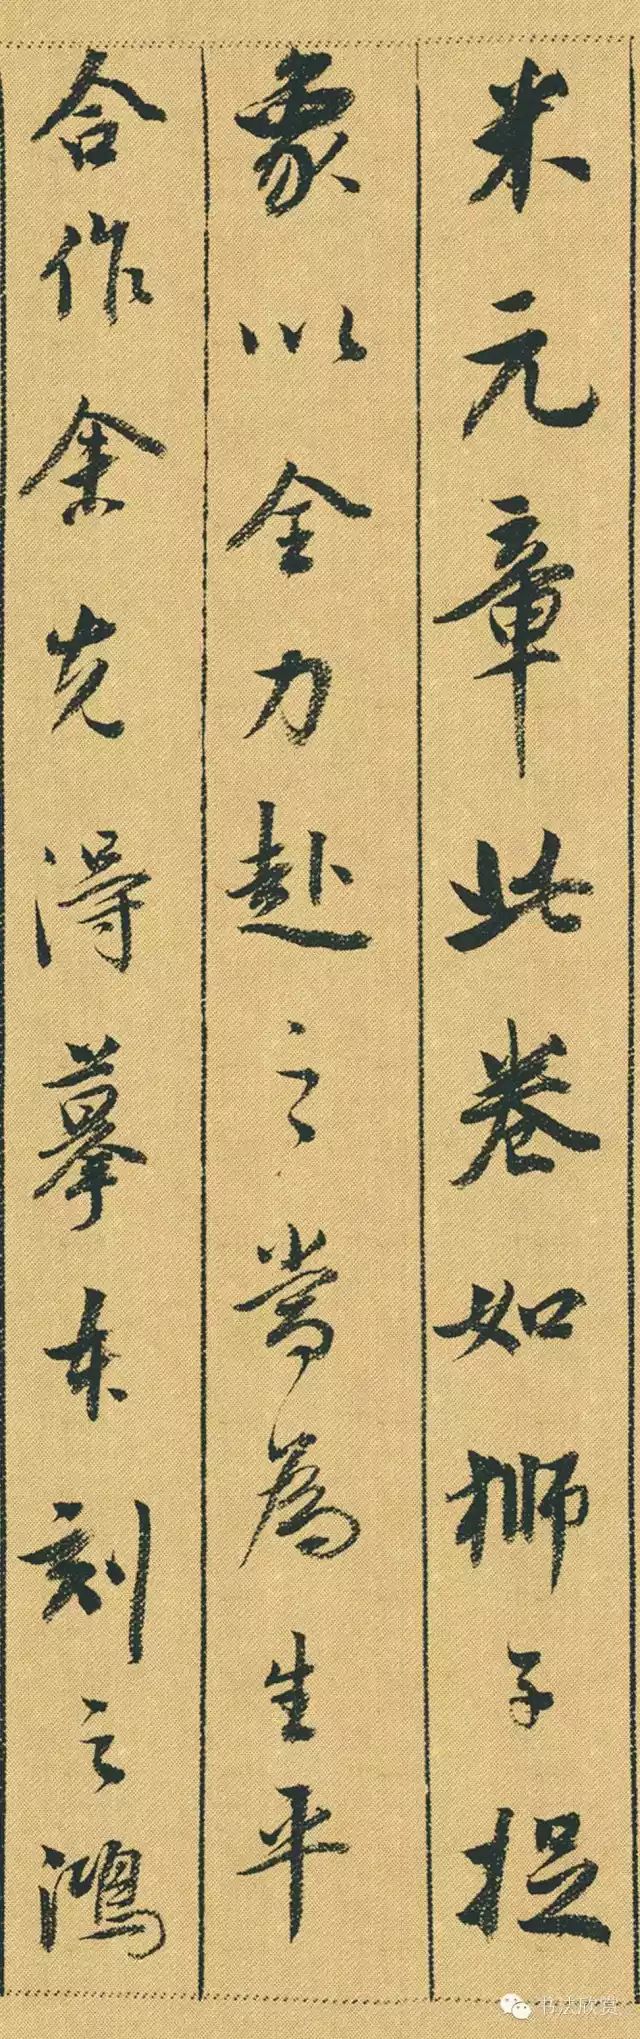 米元章此卷如狮子捉
象以全力赴之当為生平
合作余先得摹本刻之鴻
书法欣赏